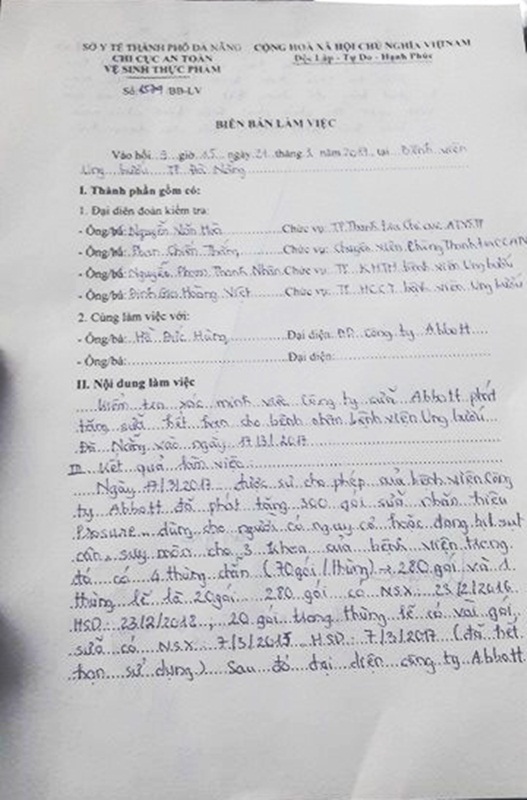 SỞ Y TẾ THÀNH PHỐ ĐÀ NẴNG
CỘNG HOÀ XÃ HỘI CHỦ NGHĨA VIỆT NAM
CHI CỤC AN TOÀN
Độc Lập - Tự Do - Hạnh Phúc
VỆ SINH THỰC PHẨM
Số: /BB-LV
BIÊN BẢN LÀM VIỆC
Vào hồi 9 giờ 15 ngày 21 tháng 3 năm 2017, tại Bệnh viện
Ung bướu TP Đà Nẵng
I. Thành phần gồm có:
1. Đại diện đoàn kiểm tra:
- Ông/bà: Nguyễn Văn Chức vụ: TP Thanh tra Chi cục ATVSTP
- Ông/bà: Phan Chiến Thắng Chức vụ: Chuyên viên Phòng Thanh tra CCATV
- Ông/bà: Nguyễn Phạm Thanh Nhân Chức vụ: TP KHTH bệnh viện Ung bướu
- Ông/bà: Đinh Gia Hoàng Việt Chức vụ: TP HCCT bệnh viện Ung bướu
2. Cùng làm việc với:
- Ông/bà: Hồ Đức Hùng Đại diện: công ty Abbott
- Ông/bà: Đại diện:
II. Nội dung làm việc
Kiểm tra xác minh việc Công ty sữa Abbott phát
tặng sữa hết hạn cho bệnh nhân bệnh viện Ung bướu
Đà Nẵng vào ngày 17/3/2017
III. Kết quả làm việc:
Ngày 17/3/2017 được sự cho phép của bệnh viện Công
ty Abbott đã phát tặng 300 gói sữa nhãn hiệu
Prosure dùng cho người có nguy cơ hoặc đang bị sụt
cân, suy mòn cho 3 khoa của bệnh viện trong
đó có 4 thùng chẵn (70gói/thùng) → 280 gói và 1
thùng lẻ là 20gói. 280 gói có NSX: 23/2/2016
HSD: 23/2/2018, 20 gói trong thùng lẻ có vài gói
sữa có NSX: 7/3/2015 HSD: 7/3/2017 (đã hết
hạn sử dụng). Sau đó đại diện công ty Abbott